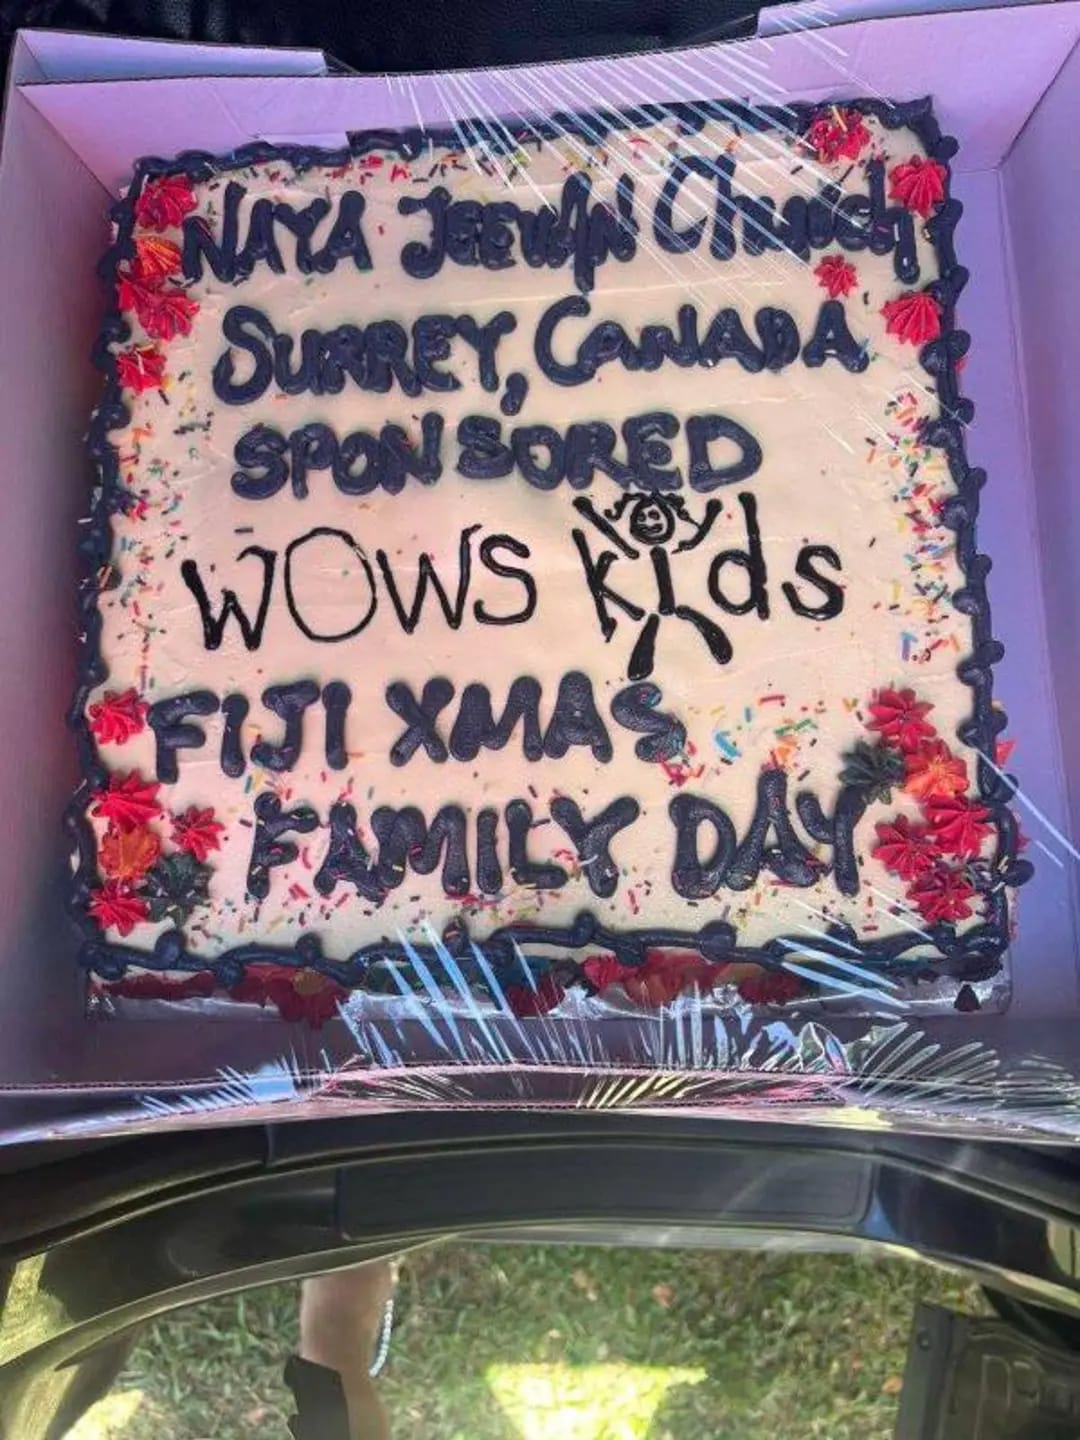 NAYA JEEVAN Church
SURREY, CANADA
SPONSORED
WOWS kids
FIJI XMAS
FAMILY DAY